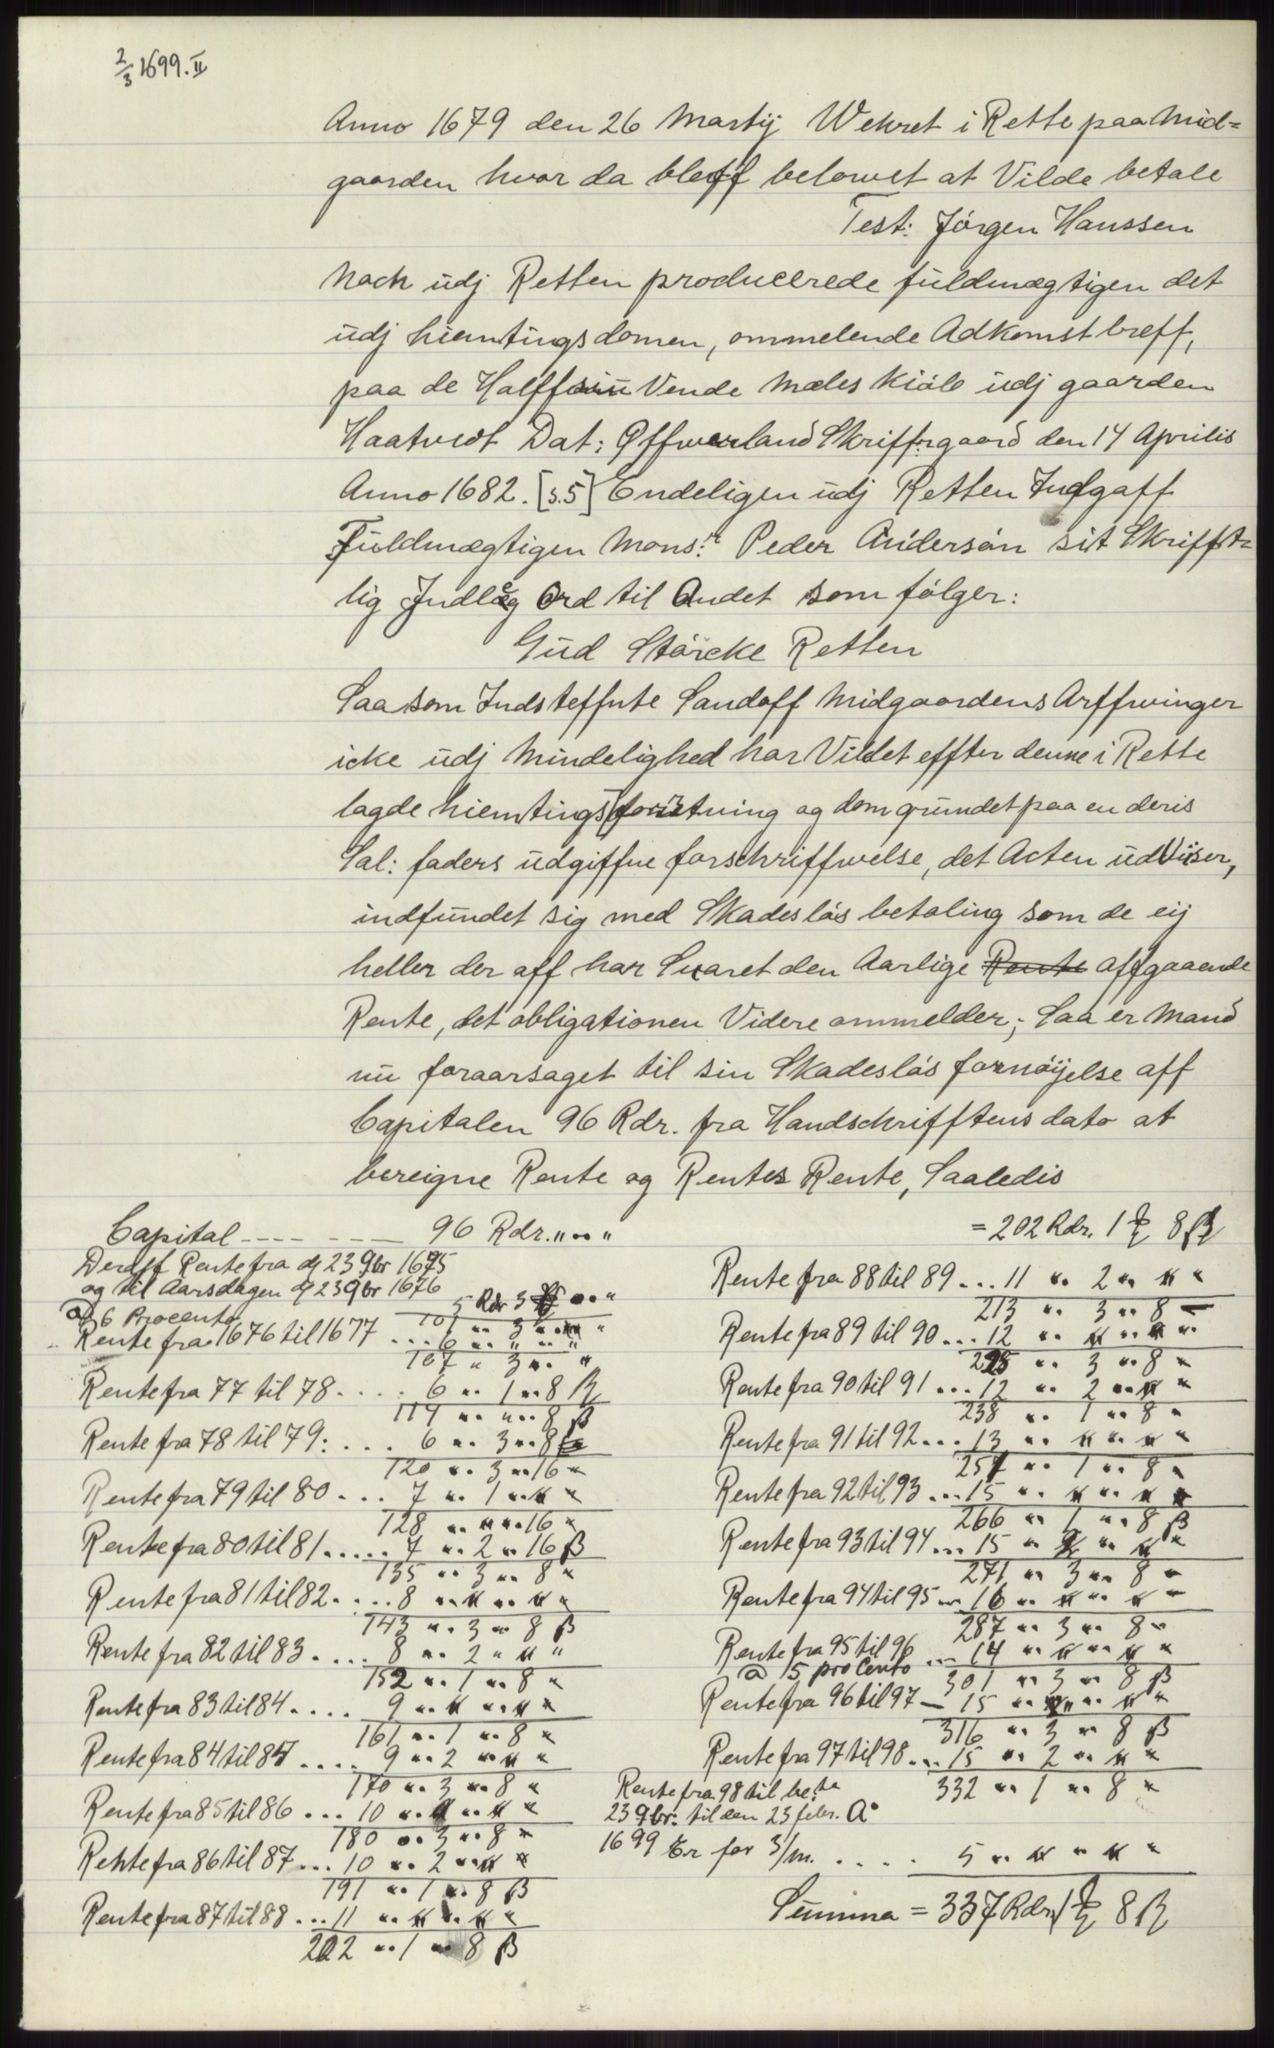 2/3 1699. II
Anno 1679 den 26 Martij Wehret i Rette paa Mid=
gaarden hvor da bleff belowet at Vilde betale
Test: Jörgen Hanssen
Noch udj Retten producerede fuldmægtigen det
udj hiemtings domen, ommelende Adkomst breff,
paa de Halffsiu Vende Mæles Kiöb udj gaarden
Haatvedt Dat: Offwerland Skriffrgaard den 14 Aprilis
Anno 1682. [s.5] Endeligen udj Retten Indgaff
Fuldmægtigen Mons:r Peder Andersön sit Skrifft=
lig Indleg Ord til Andet som fölger:
Gud Stärcke Retten
Saasom Indsteffnte Sandoff Midgaardens Arffwinger
icke udj Mindelighed har Vildet effter denne i Rette
lagde hiemtings forretning og dom grundet paa en deris
Sal: faders udgiffne forschriffwelse, det Acten udViiser,
indfundet sig med Skadeslös betaling som de eij
heller der aff har Svaret den Aarlige Rente affgaaende
Rente, det obligationen Videre ommelder; Saa er Mand
nu foraarsaget til sin Skadeslös fornöijelse aff
Capitalen 96 Rdr. fra Handschrifftens dato at
bereigne Rente og Rentes Rente, Saaledis
Capital ---- ---- 96 Rdr. " " "
Deraff Rente fra dj 23 9br 1675
og til Aarsdagen dj 23 9br 1676
a 6 Procento 5 Rdr 3 " "
101 " 3 " "
Rente fra 1676 til 1677 ... 6 " " " "
107 " 3 " "
Rente fra 77 til 78 .... 6 " 1 " 8 ß
114 " " " 8 ß
Rente fra 78 til 79: .... 6 " 3 " 8
120 " 3 " 16 "
Rente fra 79 til 80 .... 7 " 1 " " "
128 " " " 16 "
Rente fra 80 til 81 ..... 7 " 2 " 16 ß
135 " 3 " 8 "
Rente fra 81 til 82 .... 8 " " " " "
143 " 3 " 8 ß
Rente fra 82 til 83 .... 8 " 2 " " "
152 " 1 " 8 "
Rente fra 83 til 84 .... 9 " " " " "
161 " 1 " 8 "
Rente fra 84 til 85 .... 9 " 2 " " "
170 " 3 " 8 "
Rente fra 85 til 86 ... 10 " " " " "
180 " 3 " 8 "
Rente fra 86 til 87 ... 10 " 2 " " "
191 " 1 " 8 ß
Rente fra 87 til 88 ... 11 " " " " "
202 " 1 " 8 ß
= 202 Rdr. 1 8 ß
Rente fra 88 til 89 ... 11 " 2 " " "
213 " 3 " 8 "
Rente fra 89 til 90 ... 12 " " " " "
225 " 3 " 8 "
Rente fra 90 til 91 ... 12 " 2 " " "
238 " 1 " 8 "
Rente fra 91 til 92 ... 13 " " " " "
251 " 1 " 8 "
Rente fra 92 til 93 ... 15 " " " " "
266 " 1 " 8 ß
Rente fra 93 til 94 ... 15 " 2 " " "
271 " 3 " 8 "
Rente fra 94 til 95 ... 16 " " " " "
287 " 3 " 8 "
Rente fra 95 til 96 ... 14 " " " " "
a 5 pro Cento
301 " 3 " 8 ß
Rente fra 96 til 97 – 15 " " " " "
316 " 3 " 8 ß
Rente fra 97 til 98 ... 15 " 2 " " "
332 " 1 " 8 "
Rente fra 98 til be:te
23 9br: til den 23 febr. Ao
1699 Er for 3/m. .... 5 " " " " "
Summa = 337 Rdr 1 8 ß